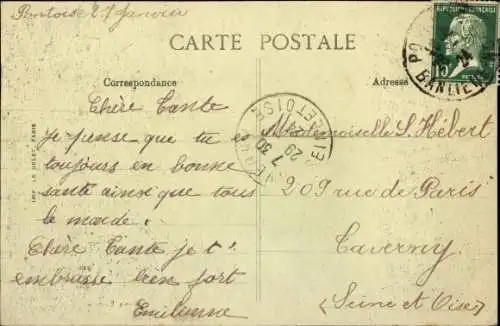 Pontoise 27 Janvier
CARTE POSTALE
Correspondance
Adresse
Chère Tante
je pense que tu es
toujours en bonne
santé ainsi que tous
le monde.
Chère Tante je t'
embrasse bien fort
Emilienne
Mademoiselle S. Hébert
209 rue de Paris
Taverny
(Seine et Oise)
REPUBLIQUE FRANÇAISE
15
BANLIEUE
7 30
29